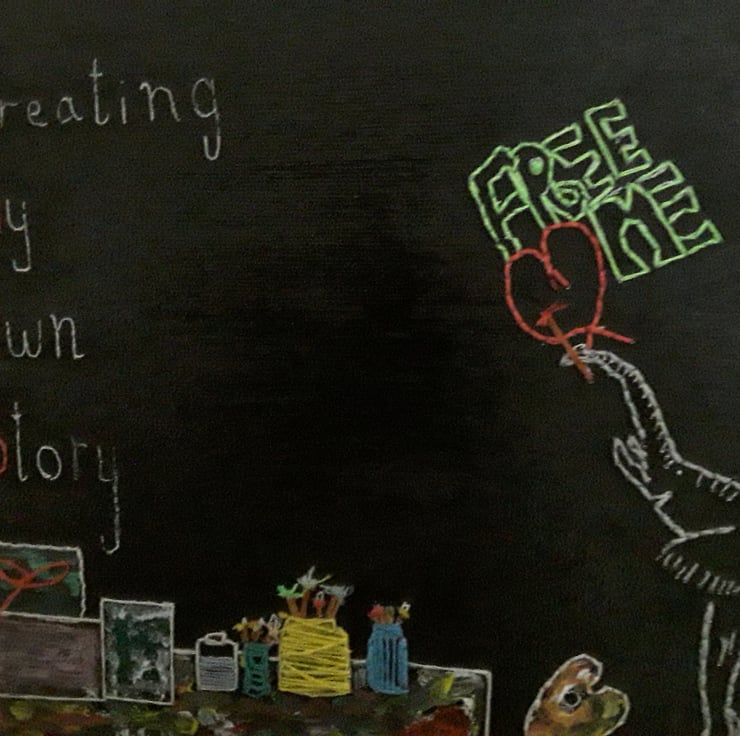 reating
FREE
ME
y
wn
tory